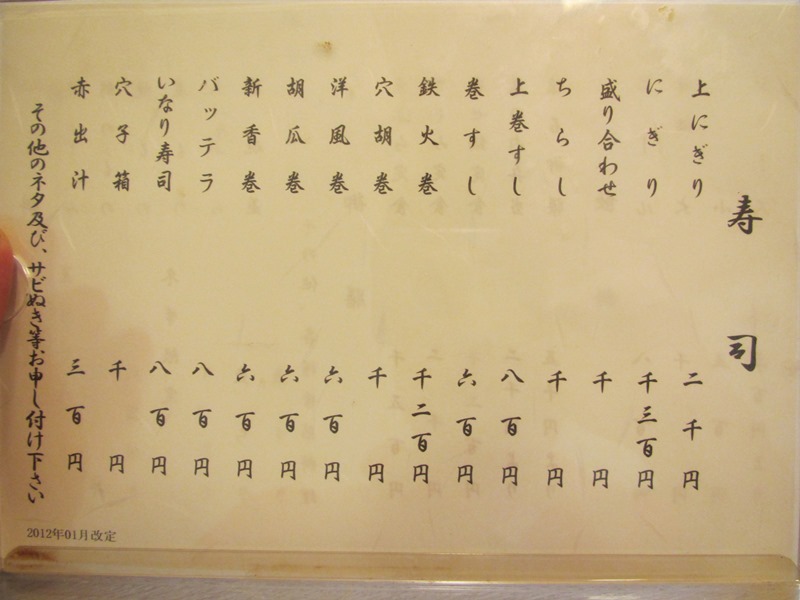 寿司
上にぎり 二千円
にぎり 千三百円
盛り合わせ 千円
ちらし 千円
上巻すし 八百円
巻すし 六百円
鉄火巻 千二百円
穴胡巻 千円
洋風巻 六百円
胡瓜巻 六百円
新香巻 六百円
バッテラ 八百円
いなり寿司 八百円
穴子箱 千円
赤出汁 三百円
その他のネタ及び、サビぬき等お申し付け下さい
2012年01月改定